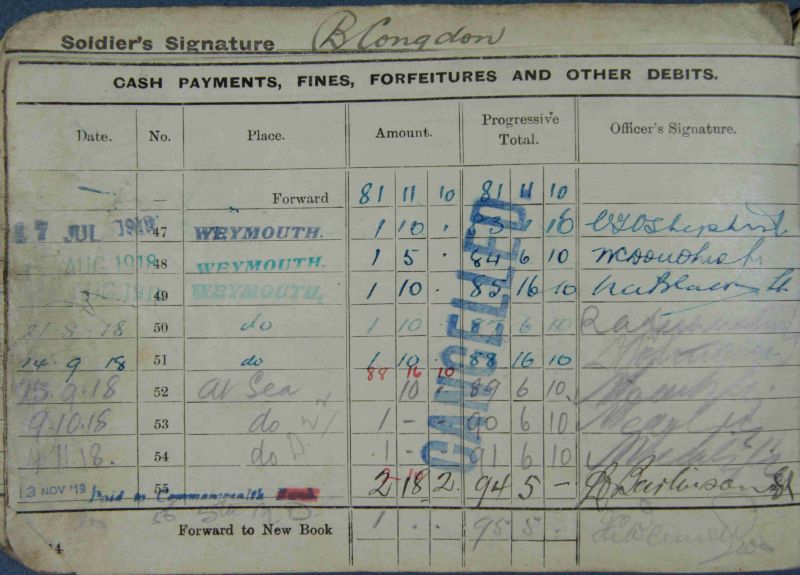 Soldier's Signature B Congdon
CASH PAYMENTS, FINES, FORFEITURES AND OTHER DEBITS.
Date. No. Place. Amount. Progressive Total. Officer's Signature.
Forward 81 11 10 81 11 10
17 JUL 1918 47 WEYMOUTH. 1 10 . 83 1 10
AUG 1918 48 WEYMOUTH. 1 5 . 84 6 10
49 WEYMOUTH. 1 10 . 85 16 10
21-8-18 50 do 1 10 . 87 6 10
14.9.18 51 do 1 10 . 88 16 10
88 16 10
25.9.18 52 at Sea 10 . 89 6 10
9.10.18 53 do 1 - - 90 6 10
4.11.18. 54 do 1 - - 91 6 10
13 NOV '19 55 Paid in Commonwealth Bank. 2 18 2 94 5 -
56 1 . . 95 5 -
Forward to New Book
CANCELLED.